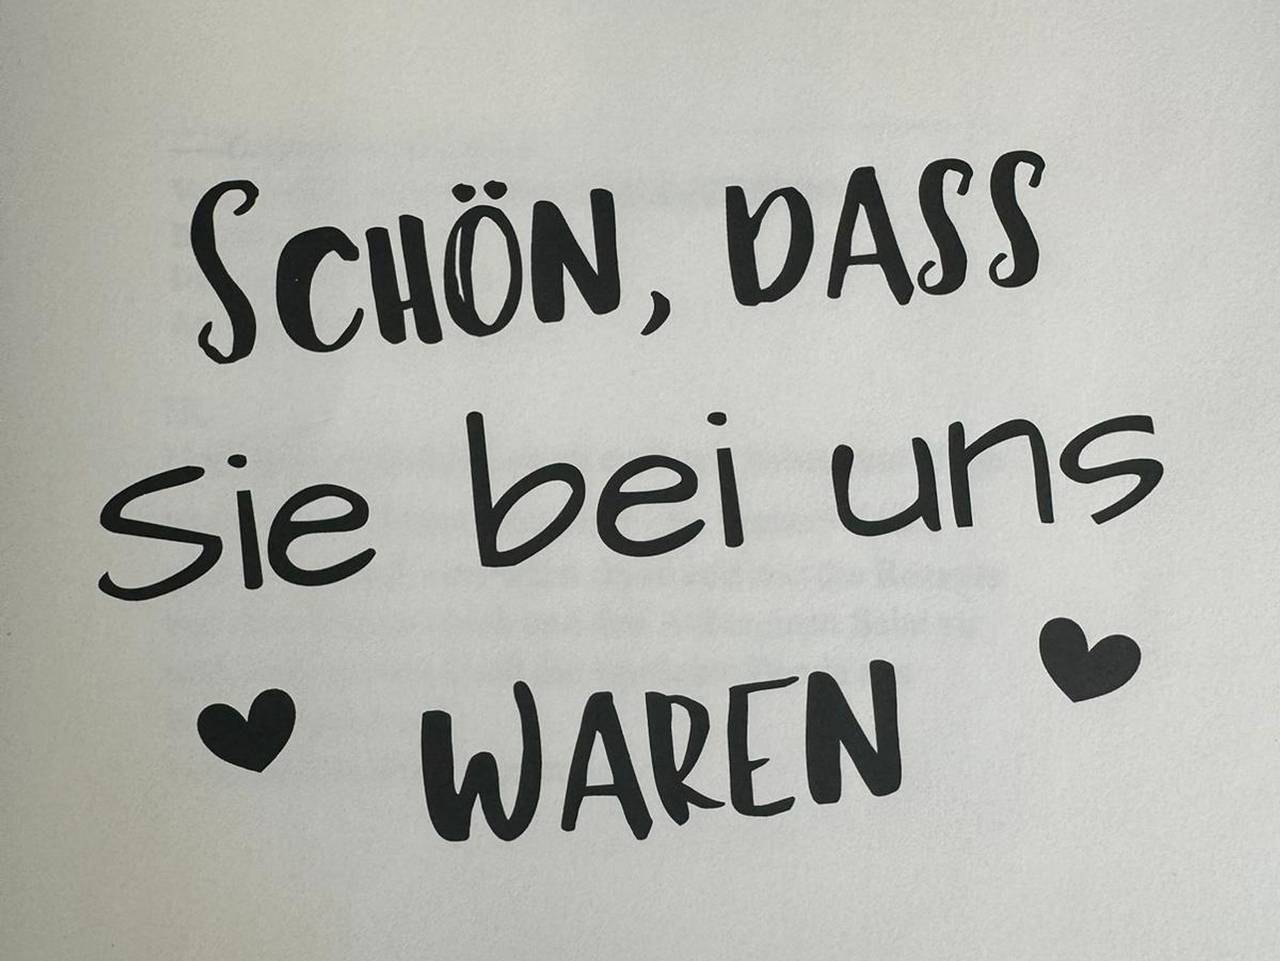 SCHÖN, DASS
sie bei uns
WAREN